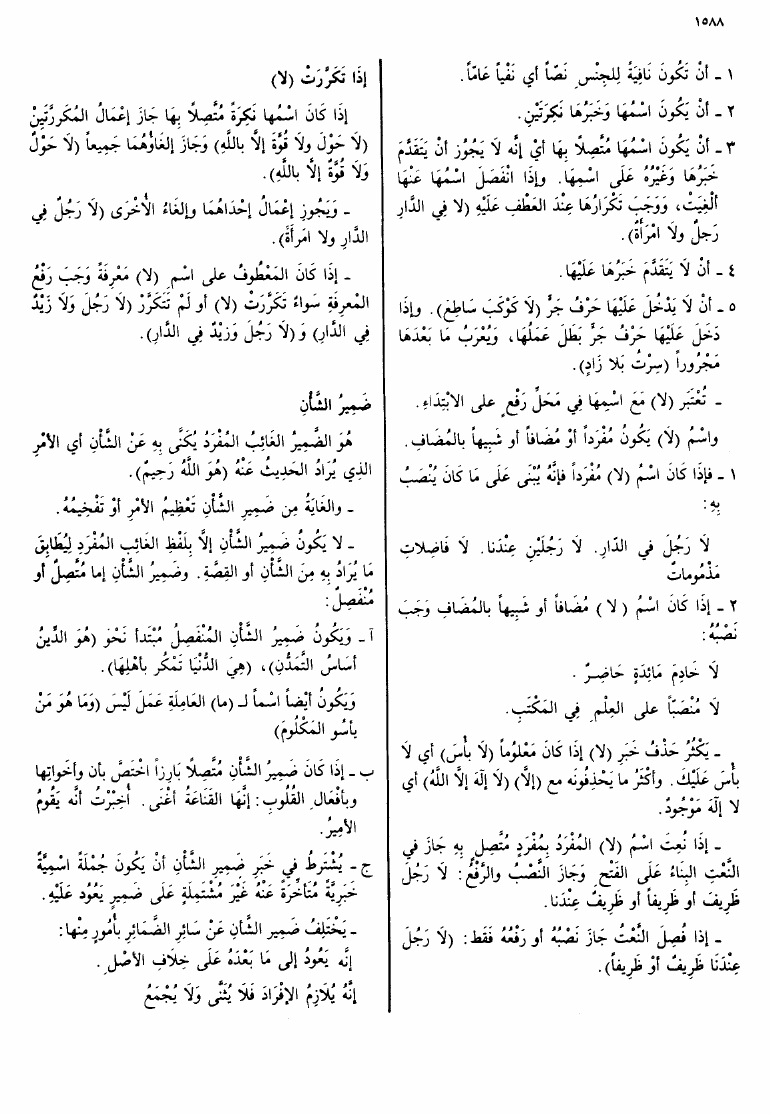 ١٥٨٨
١ - أَنْ تَكُونَ نَافِيَةً لِلجِنْسِ نَصّاً أي نَفْياً عَامّاً.
٢ - أَنْ يَكُونَ اسْمُهَا وَخَبَرُهَا نَكِرَتَيْنِ.
٣ - أَنْ يَكُونَ اسْمُهَا مُتَّصِلاً بِهَا أيْ إنَّه لَا يَجُوُز أنْ يَتَقَدَّمَ
خَبَرُهَا وَغَيْرُهُ عَلَى اسْمِهَا. وإذَا انْفَصَلَ اسْمُهَا عَنْهَا
أُلْغِيَتْ، وَوَجَبَ تَكْرَارُهَا عِنْدَ العَطْفِ عَلَيْهِ (لا فِي الدَّارِ
رَجلٌ ولَا امْرَأَةٌ).
٤ - أَنْ لَا يَتَقَدَّمَ خَبَرُهَا عَلَيْهَا.
٥ - أَنْ لَا يَدْخُلَ عَلَيْهَا حَرْفُ جَرٍّ (لَا كَوْكَبَ سَاطِعٌ). وإذَا
دَخَلَ عَلَيْهَا حَرْفُ جَرٍّ بَطَلَ عَمَلُهَا، وَيُعْرَبُ مَا بَعْدَهَا
مَجْرُوراً (سِرْتُ بَلا زَادٍ).
- تُعْتَبَر (لَا) مَعَ اسْمِهَا فِي مَحَلِّ رَفْعٍ على الابْتِدَاءِ.
واسْمُ (لَا) يَكُونُ مُفْرَداً أوْ مُضَافاً أو شَبِيهاً بالمُضَافِ.
١ - فإذَا كَانَ اسْمُ (لا) مُفْرَداً فإنَّهُ يُبْنَى عَلَى مَا كَانَ يُنْصَبُ
بِهِ:
لَا رَجُلَ في الدَّارِ. لَا رَجُلَيْنِ عِنْدَنا. لَا فَاضِلاتِ
مَذْمُوماتٌ
٢ - إذَا كَانَ اسْمُ (لا) مُضَافاً أو شَبِيهاً بالمُضَافِ وَجَبَ
نَصْبُهُ:
لَا خَادِمَ مَائِدَةٍ حَاضِرٌ.
لَا مُنْصَبّاً على العِلْمِ فِي المَكْتَبِ.
- يَكْثُرُ حَذْفُ خَبَرِ (لا) إذَا كَانَ مَعْلُوماً (لَا بَأْسَ) أي لَا
بَأْسَ عَلَيْكَ. وأكْثَرُ ما يَحْذِفُونَه مع (إلَّا) (لَا إلَهَ إلَّا اللَّهُ) أي
لا إلَهَ مَوْجُودٌ.
- إذَا نُعِتَ اسْمُ (لا) المُفْرَدُ بِمُفْرَدٍ مُتَّصِلٍ بِهِ جَازَ في
النَّعْتِ البِنَاءُ عَلَى الفَتْحِ وَجَازَ النَّصْبُ والرَّفْعُ: لَا رَجُلَ
ظَرِيفَ أو ظَرِيفاً أو ظَرِيفٌ عِنْدَنا.
- إذا فُصِلَ النَّعْتُ جَازَ نَصْبُهُ أو رَفْعُهُ فَقَط: (لَا رَجُلَ
عِنْدَنَا ظَرِيفٌ أوْ ظَرِيفاً).
إذَا تَكَرَّرَتْ (لا)
إذَا كَانَ اسْمُها نَكِرَةً مُتَّصِلاً بِهَا جَازَ إعْمَالُ المُكَررَّتَيْنِ
(لَا حَوْلَ ولَا قُوَّةَ إلَّا باللَّهِ) وَجَازَ إلغَاؤُهُمَا جَميعاً (لَا حَوْلٌ
ولَا قُوَّةٌ إلَّا باللَّهِ).
- وَيَجُوزِ إعْمَالُ إحْدَاهُمَا وإلغَاءُ الأُخْرَى (لَا رَجُلَ فِي
الدَّارِ ولا امْرأَةٌ).
- إذَا كَانَ المَعْطُوفُ على اسْمِ (لا) مَعْرِفَةً وَجَبَ رَفْعُ
المْعرِفَةِ سَواءٌ تَكَرَّرَتْ (لا) أو لَمْ تَتَكَرَّرْ (لَا رَجُلَ وَلَا زَيْدٌ
فِي الدَّارِ) وَ (لَا رَجُلَ وَزَيْدٌ فِي الدَّارِ).
ضَمِيرُ الشَّأْنِ
هُوَ الضَّمِيرُ الغَائِبُ المُفْرَدُ يُكَنَّى بِهِ عَنْ الشَّأْنِ أي الأَمْرِ
الذي يُرَادُ الحَدِيثُ عَنْهُ (هُوَ اللَّهُ رَحِيمٌ).
- والغَايَةُ مِن ضَمِيرِ الشَّأْنِ تَعْظِيمُ الأَمْرِ أوْ تَفْخِيمُهُ.
- لَا يكونُ ضَمِيرُ الشَّأْنِ إلَّا بِلَفْظِ الغَائِبِ المُفْرَدِ لِيُطَابِقَ
مَا يُرَادُ بِهِ مِنَ الشَّأْنِ أو القِصَّةِ. وضَمِيرُ الشَّأْنِ إما مُتَّصِلٌ أو
مُنْفَصِلٌ:
آ - وَيَكُونُ ضَمِيرُ الشَّأْنِ المُنْفَصِلُ مُبْتَدأ نَحْوَ (هُوَ الدِّينُ
أسَاسُ التَّمَدُّنِ)، (هِيَ الدُّنْيَا تَمْكُر بأهْلِهَا).
وَيَكُونُ أيْضاً اسْماً لـ (ما) العَامِلَةِ عَمَلَ لَيْسَ (وَمَا هُوَ مَنْ
يأسُو المَكْلُومَ)
ب - إذَا كَانَ ضَمِيرُ الشَّأْنِ مُتَّصِلاً بَارِزاً اخْتَصَّ بأن وأخَواتِها
وبأفْعَالِ القُلُوبِ: إنَّهَا القَنَاعَةُ أغْنَى. أُخبِرْتُ أنَّه يَقُومُ
الأمِيرُ.
ج - يُشْتَرطُ في خَبَرِ ضَمِيرِ الشَّأْنِ أنْ يَكُونَ جُمْلَةً اسْمِيَّةً
خَبَرِيَّةً مُتَأخِّرَةً عَنْهُ غَيْرَ مُشْتَمِلَةٍ عَلَى ضَمِيرٍ يَعُود عَلَيْهِ.
- يَخْتَلِفُ ضَمِير الشَّأنِ عَنْ سَائِرِ الضَّمَائِرِ بأُمُورٍ مِنْها:
إنَّه يَعُودُ إلى مَا بَعْدَهُ عَلَى خِلَافِ الأَصْلِ.
إنَّهُ يُلَازِمُ الإفْرَادَ فَلَا يُثَنَّى وَلَا يُجْمَعُ